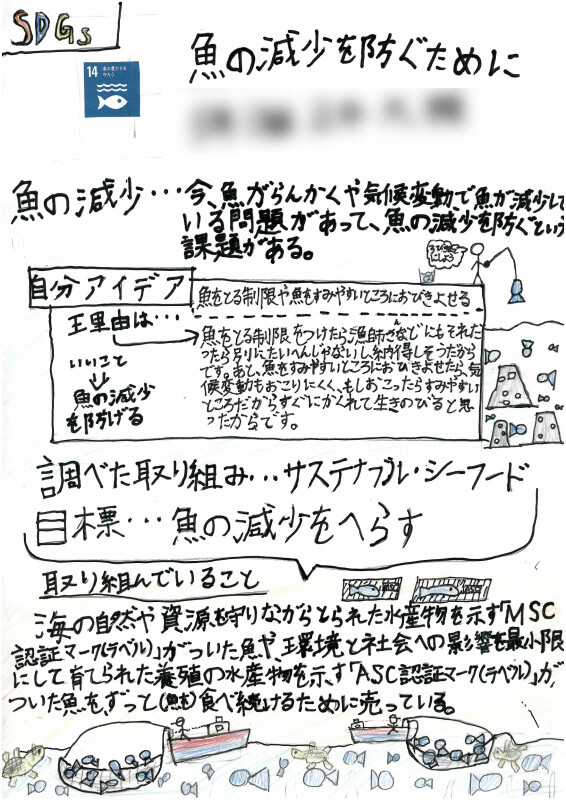 SDGs
14 海の豊かさを
守ろう
魚の減少を防ぐために
魚の減少・・・今、魚がらんかくや気候変動で魚が減少して
いる問題があって、魚の減少を防ぐという
課題がある。
自分アイデア
魚をとる制限や魚をすみやすいところにおびきよせる
理由は・・・
魚をとる制限をつけたら漁師さんなどにもそれだ
ったら別にたいへんじゃないし納得しそうだから
です。あと、魚をすみやすいところにおびきよせたら、気
候変動もおこりにくく、もしおこったらすみやすい
ところだからすぐにかくれて生きのびると思
ったからです。
いいこと
↓
魚の減少
を防げる
調べた取り組み・・・サステナブル・シーフード
目標・・・魚の減少をへらす
取り組んでいること
海の自然や資源を守りながらとられた水産物を示す「MSC
認証マーク(ラベル)」がついた魚や、環境と社会への影響を最小限
にして育てられた養殖の水産物を示す「ASC認証マーク(ラベル)」が
ついた魚を、ずっと(魚を)食べ続けるために売っている。